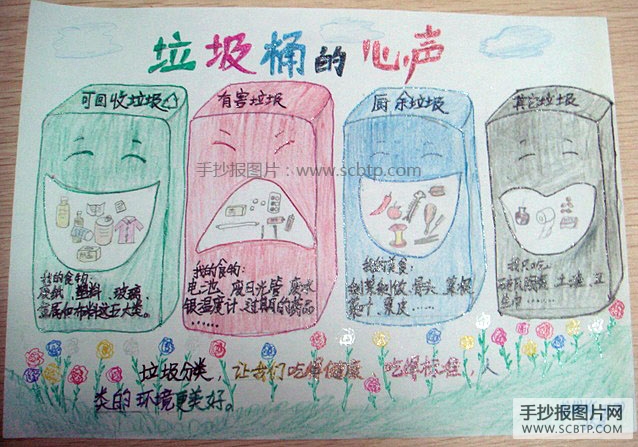 垃圾桶的心声
可回收垃圾
有害垃圾
厨余垃圾
其它垃圾
手抄报图片：www.scbtp.com
我的食物：
废纸、塑料、玻璃
金属和布料这五大类。
我的食物：
电池、废日光管、废水
银温度计、过期的药品
……
我的美食：
剩菜剩饭、骨头、菜根
菜叶、果皮……
我只吃
渣土、卫
垃圾分类，让我们吃得健康 吃得标准，人
类的环境更美好。
手抄报图片网
WWW.SCBTP.COM